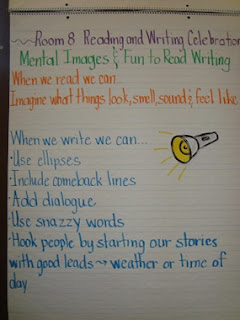 Room 8 Reading and Writing Celebration
Mental Images & Fun to Read Writing
When we read we can...
Imagine what things look, smell, sound & feel like
When we write we can...
• Use ellipses
• Include comeback lines
• Add dialogue
• Use snazzy words
• Hook people by starting our stories
with good leads → weather or time of
day